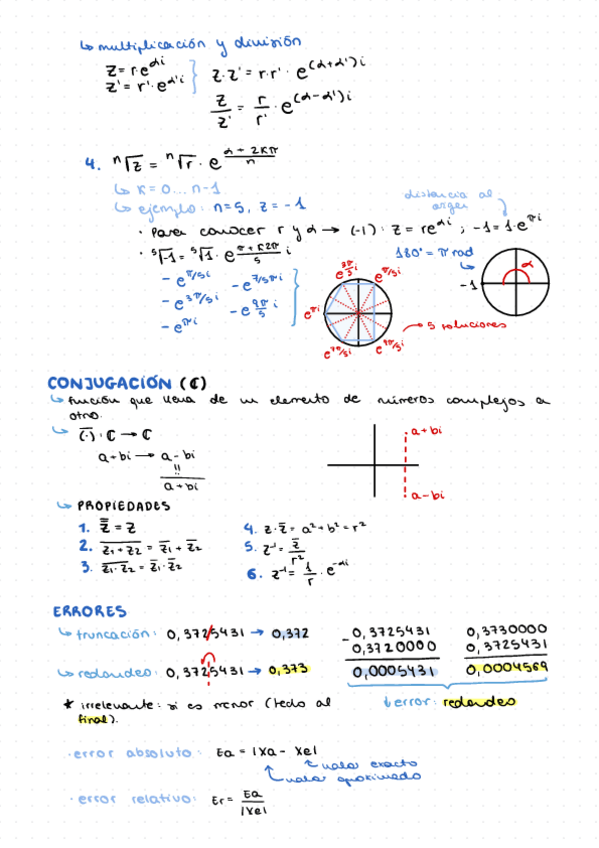 ↳ multiplicación y división
z = r·e^αi
z' = r'·e^α'i
z·z' = r·r'·e^(α+α')i
z/z' = r/r'·e^(α-α')i
4. ⁿ√z = ⁿ√r · e^(α + 2kπ)/n
↳ k = 0 ... n-1
distancia al origen
↳ ejemplo: n=5, z = -1
· Para conocer r y α → (-1): z = re^αi ; -1 = 1·e^πi
· ⁵√-1 = ⁵√1 · e^(π + k2π)/5 i
180° = π rad
- e^π/5i - e^7/5πi
- e^3π/5i - e^9π/5 i
- e^πi
e^3π/5 i e^π/5i
e^πi
e^7π/5i e^9π/5i
α
-1
5 soluciones
CONJUGACIÓN (ℂ)
↳ función que lleva de un elemento de números complejos a
otro.
↳ (·): ℂ → ℂ
a+bi → a-bi
!!
a+bi
a+bi
a-bi
↳ PROPIEDADES
1. z̿ = z
2. z̅₁̅+̅z̅₂̅ = z̅₁ + z̅₂
3. z̅₁̅·̅z̅₂̅ = z̅₁·z̅₂
4. z·z̅ = a² + b² = r²
5. z⁻¹ = z̅/r²
6. z⁻¹ = 1/r · e^-αi
ERRORES
↳ truncación: 0,3725431 → 0,372
↳ redondeo: 0,3725431 → 0,373
- 0,3725431
0,3720000
0,0005431
0,3730000
0,3725431
0,0004569
↓ error: redondeo
* irrelevante: si es menor (
final).
· error absoluto: Ea = |Xa - Xe|
valor exacto
valor aproximado
· error relativo: Er = Ea/|Xe|